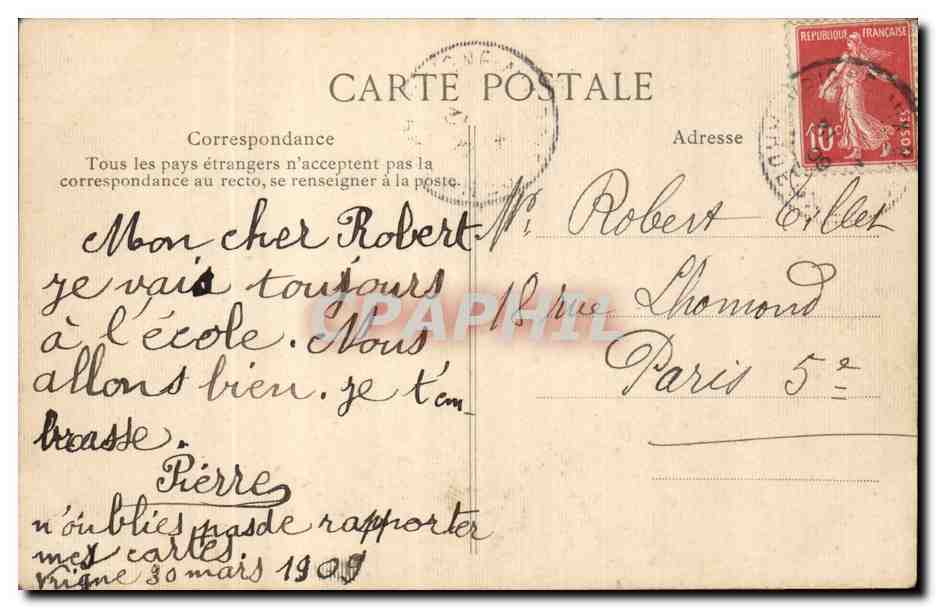 CARTE POSTALE
Correspondance
Tous les pays étrangers n'acceptent pas la
correspondance au recto, se renseigner à la poste.
Mon cher Robert.
je vais toujours
à l'école. Nous
allons bien. je t'em-
brasse.
Pierre
n'oublies pas de rapporter
mes cartes.
Vrigne 30 mars 1909
Adresse
Mr. Robert Tillet
18 rue Lhomond
Paris 5e
REPUBLIQUE FRANÇAISE
10c
POSTES
CPAPHIL